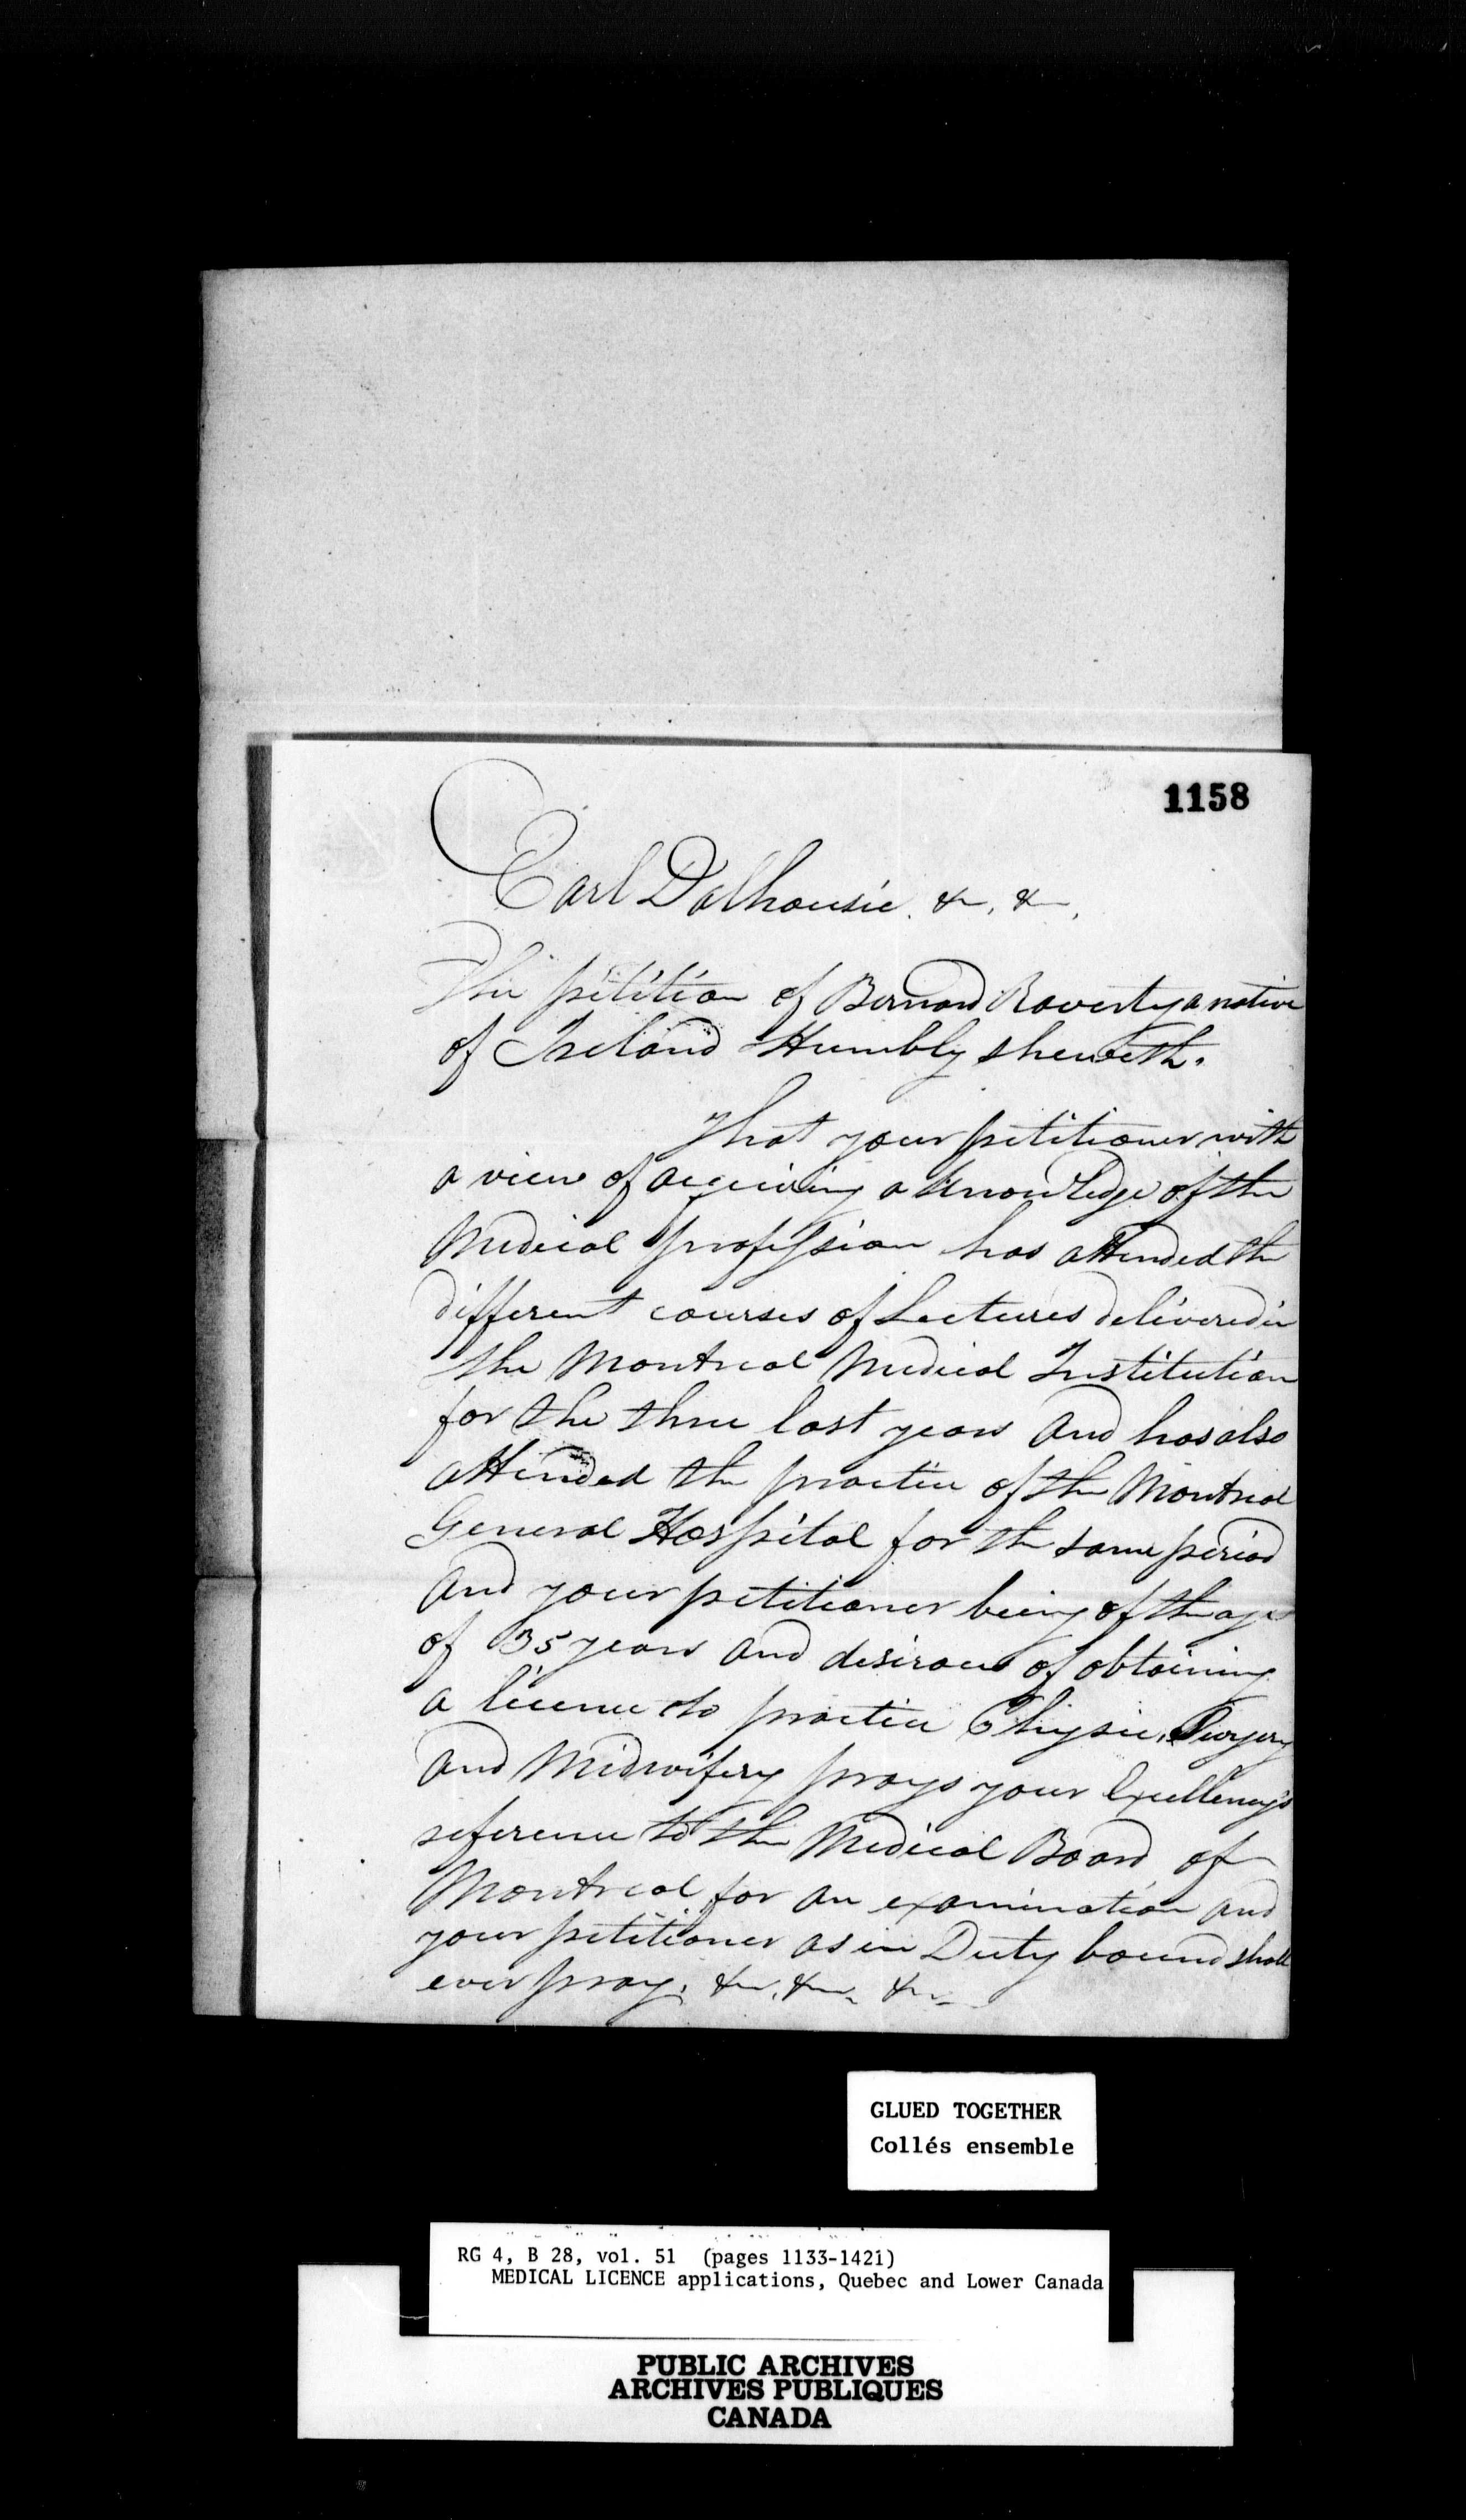 1158
Earl Dalhousie. &c, &c,
The petition of Bernard Raverty a native
of Ireland Humbly sheweth.
That your petitioner with
a view of acquiring a knowledge of the
Medical profession has attended the
different courses of Lectures delivered in
the Montreal Medical Institution
for the three last years and has also
attended the practice of the Montreal
General Hospital for the same period
and your petitioner being of the age
of 35 years and desirous of obtaining
a licence to practice Physic, Surgery
and Midwifery prays your Excellency's
reference to the Medical Board of
Montreal for an examination and
your petitioner as in Duty bound shall
ever pray, &c, &c, &c
GLUED TOGETHER
Collés ensemble
RG 4, B 28, vol. 51 (pages 1133-1421)
MEDICAL LICENCE applications, Quebec and Lower Canada
PUBLIC ARCHIVES
ARCHIVES PUBLIQUES
CANADA